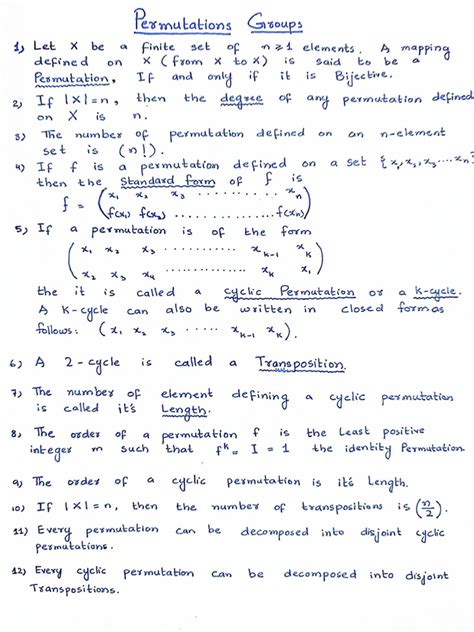 Permutations Groups
1) Let X be a finite set of n≥1 elements. A mapping
defined on X (from X to X) is said to be a
Permutation, If and only if it is Bijective.
2) If |X|=n, then the degree of any permutation defined
on X is n.
3) The number of permutation defined on an n-element
set is (n!).
4) If f is a permutation defined on a set {x₁,x₂,x₃...xₙ}
then the standard form of f is
f = ( x₁ x₂ x₃ .......... xₙ
f(x₁) f(x₂) .......... f(xₙ) )
5) If a permutation is of the form
( x₁ x₂ x₃ .......... xₖ₋₁ xₖ
x₂ x₃ x₄ .......... xₖ x₁ )
the it is called a cyclic Permutation or a k-cycle.
A k-cycle can also be written in closed form as
follows: ( x₁ x₂ x₃ ...... xₖ₋₁ xₖ ).
6) A 2-cycle is called a Transposition.
7) The number of element defining a cyclic permutation
is called it's Length.
8) The order of a permutation f is the Least positive
integer m such that fᵏ = I = 1 the identity Permutation.
9) The order of a cyclic permutation is it's Length.
10) If |X|=n, then the number of transpositions is (n/2).
11) Every permutation can be decomposed into disjoint cyclic
permutations.
12) Every cyclic permutation can be decomposed into disjoint
Transpositions.